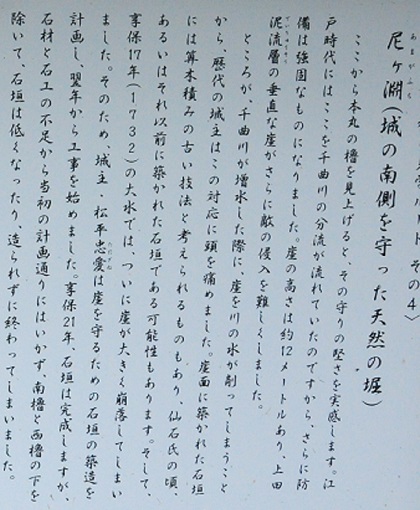 その4〉
尼ヶ淵(城の南側を守った天然の堀)
ここから本丸の櫓を見上げると、その守りの堅さを実感します。江
戸時代にはここを千曲川の分流が流れていたのですから、さらに防
備は強固なものになりました。崖の高さは約12メートルあり、上田
泥流層の垂直な崖がさらに敵の侵入を難しくしました。
ところが、千曲川が増水した際に、崖を川の水が削ってしまうこと
から、歴代の城主はこの対応に頭を痛めました。崖面に築かれた石垣
には算木積みの古い技法と考えられるものもあり、仙石氏の頃、
あるいはそれ以前に築かれた石垣である可能性もあります。そして、
享保17年(1732)の大水では、ついに崖が大きく崩落してしまい
ました。そのため、城主・松平忠愛は崖を守るための石垣の築造を
計画し、翌年から工事を始めました。享保21年、石垣は完成しますが、
石材と石工の不足から当初の計画通りにはいかず、南櫓と西櫓の下を
除いて、石垣は低くなったり造られずに終わってしまいました。